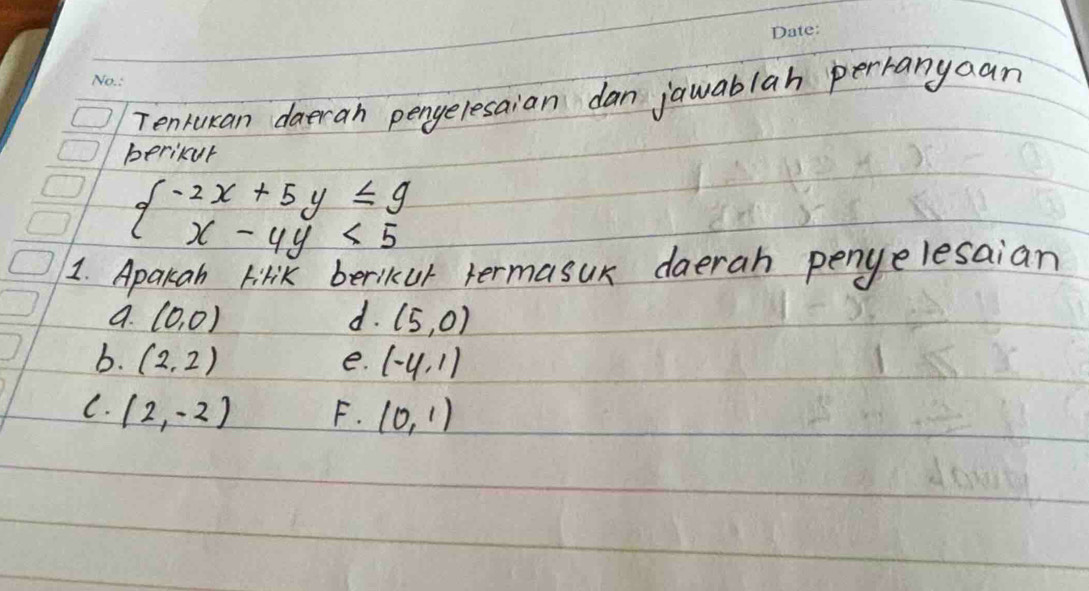 Date:
No.:
Tentukan daerah penyelesaian dan jawablah pertanyaan
berikut
{ -2x + 5y ≤ 9
x - 4y < 5
1. Apakah titik berikut termasuk daerah penyelesaian
a. (0,0) d. (5,0)
b. (2,2) e. (-4,1)
c. (2,-2) F. (0,1)